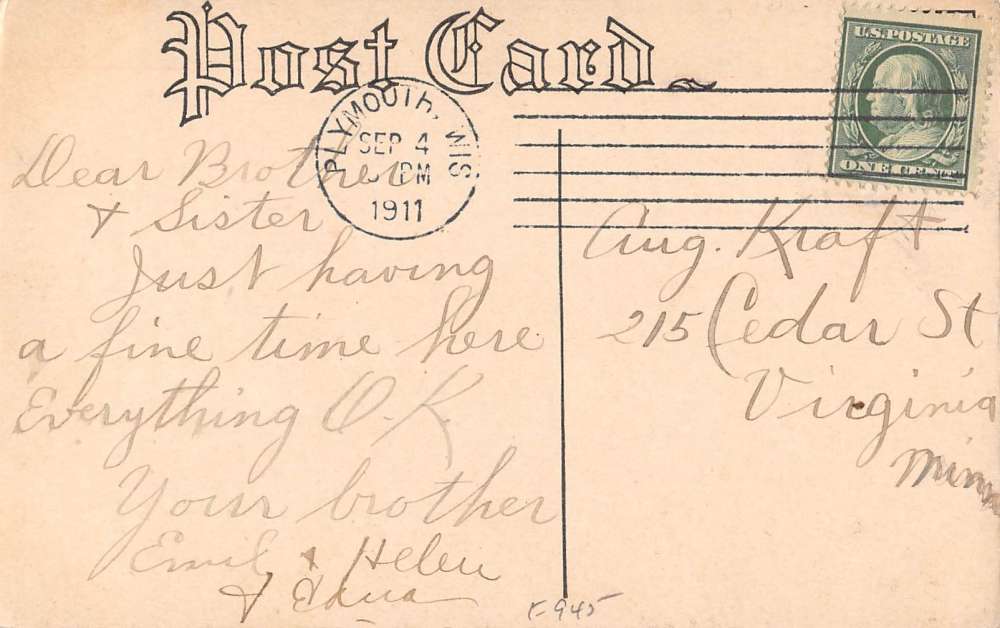 Post Card
U.S. POSTAGE
ONE CENT
PLYMOUTH, WIS.
SEP 4
PM
1911
Dear Brother
& Sister
Just having
a fine time here
Everything O.K.
Your brother
Emil & Helen
& Edna
Aug. Kraft
215 Cedar St
Virginia
Minn